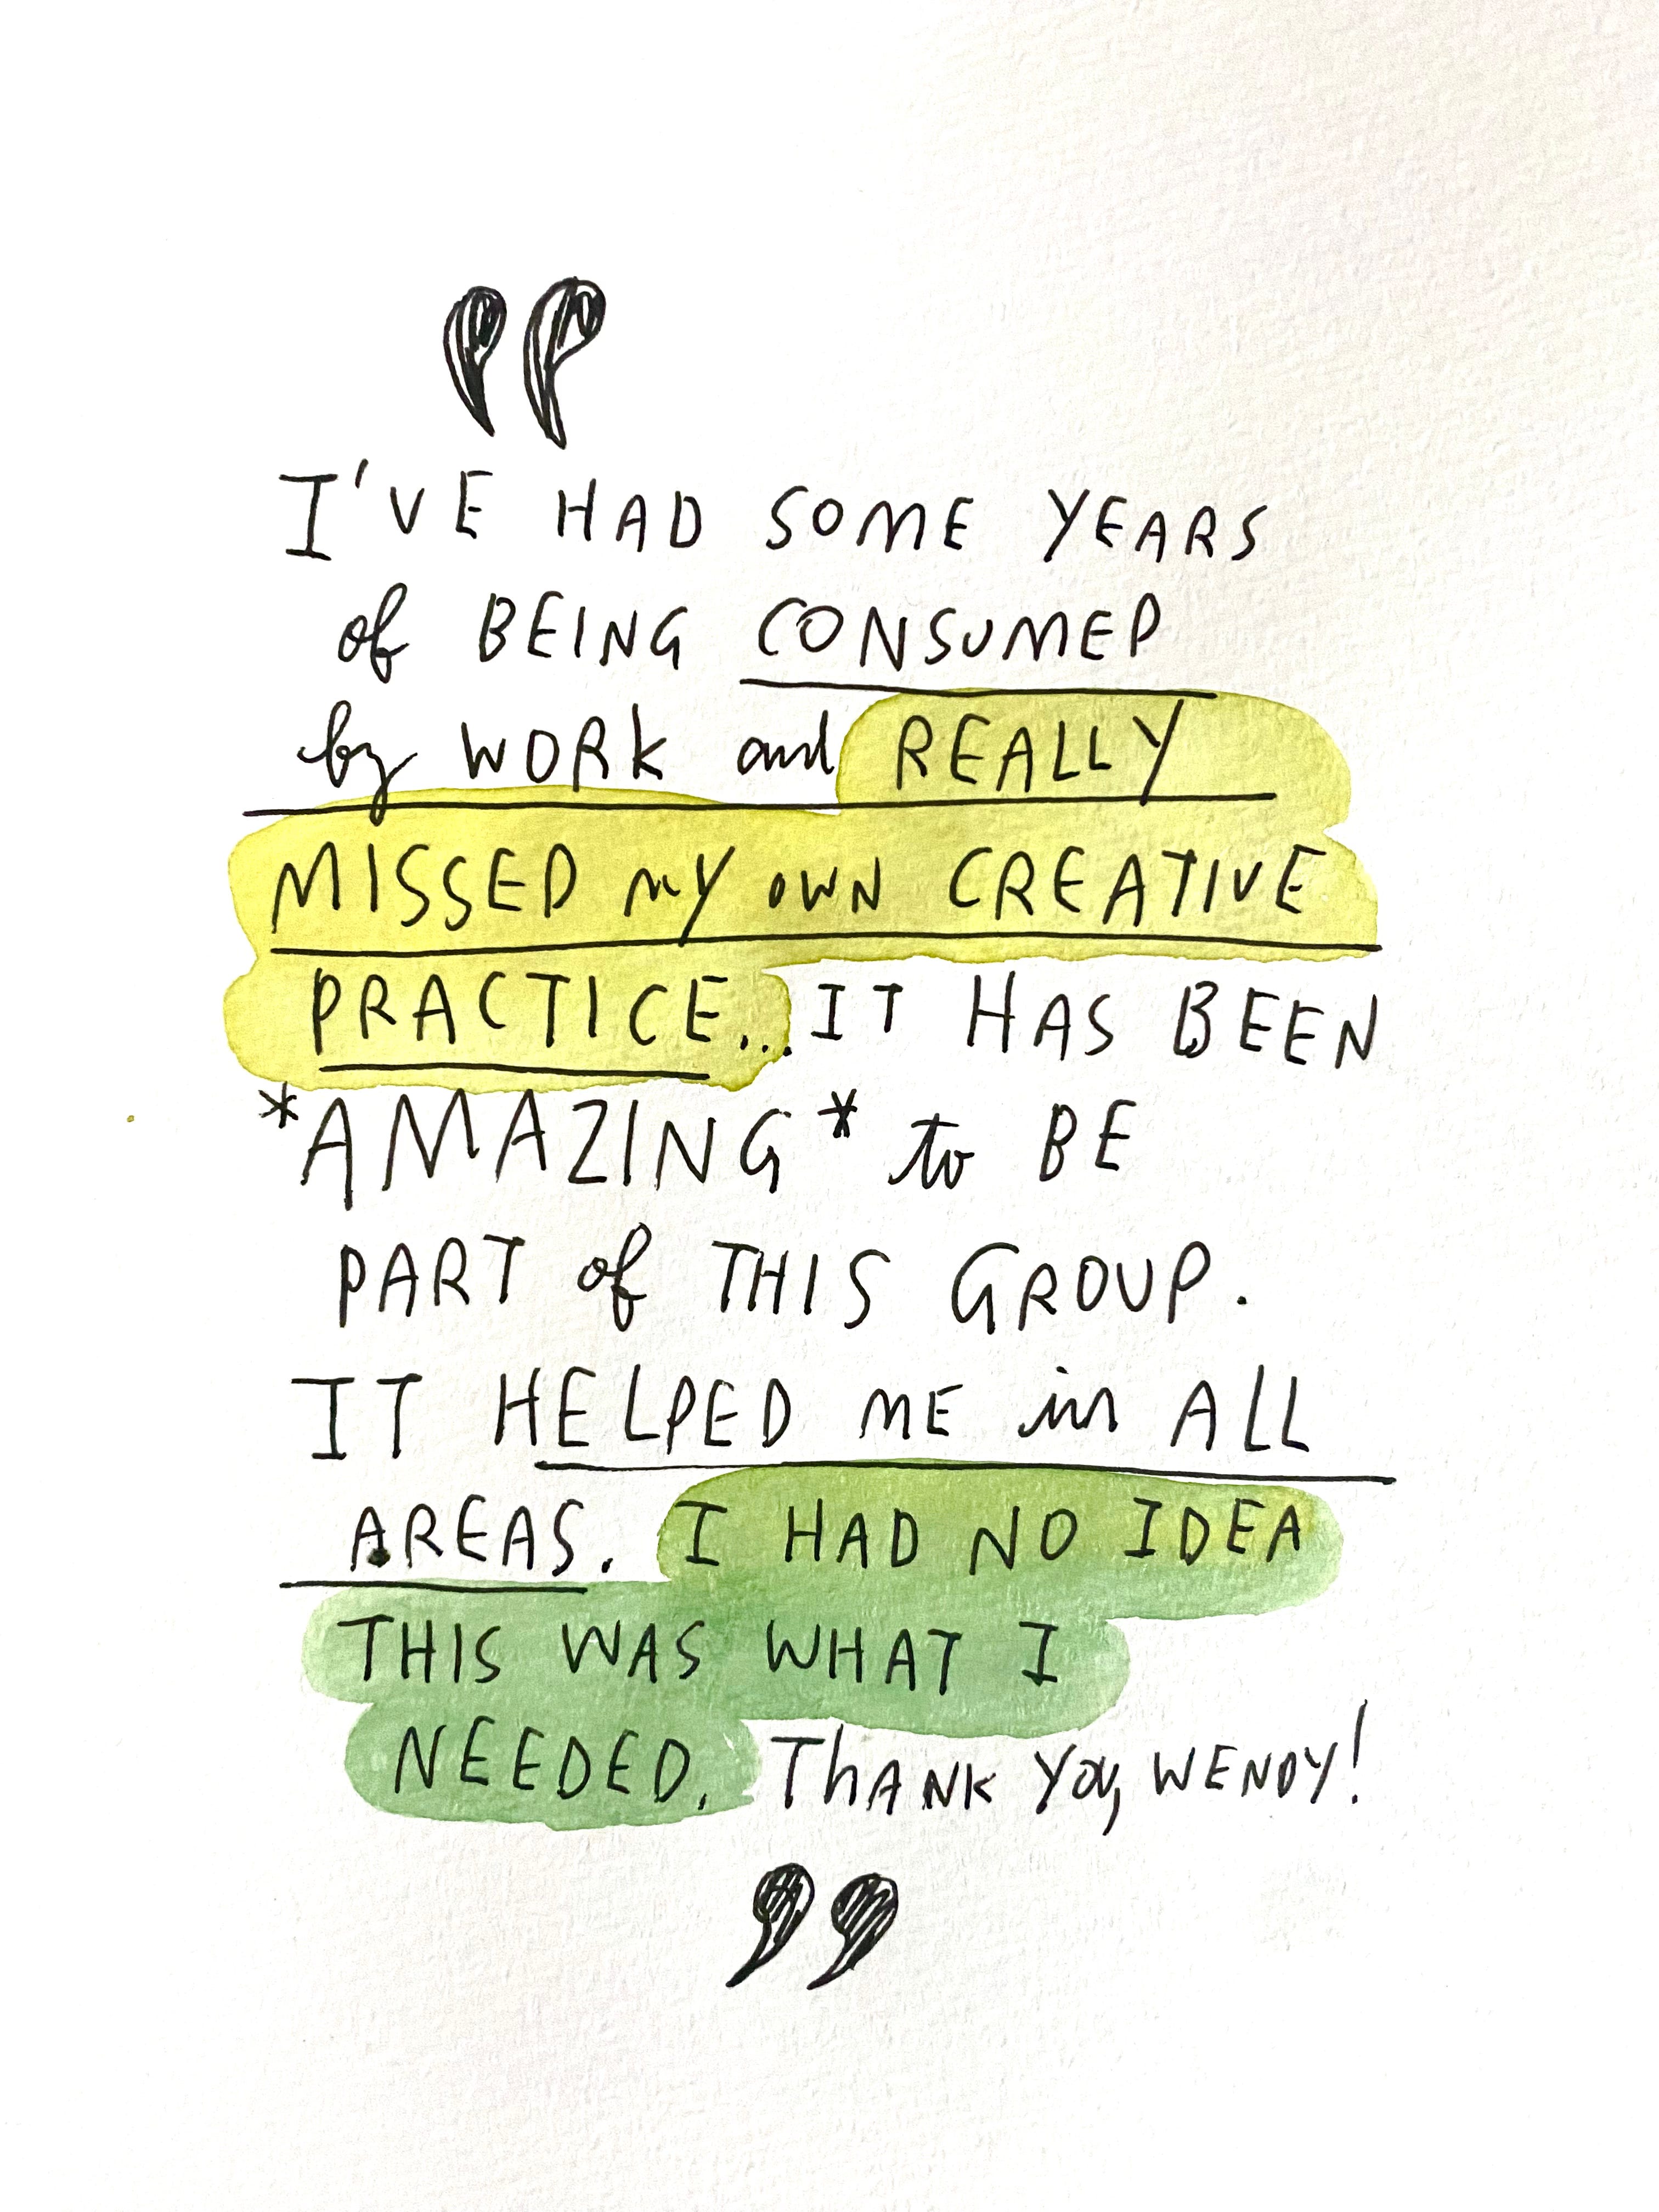 "
I'VE HAD SOME YEARS
of BEING CONSUMED
by WORK and REALLY
MISSED MY OWN CREATIVE
PRACTICE... IT HAS BEEN
*AMAZING* to BE
PART of THIS GROUP.
IT HELPED ME in ALL
AREAS. I HAD NO IDEA
THIS WAS WHAT I
NEEDED. THANK YOU, WENDY!
"